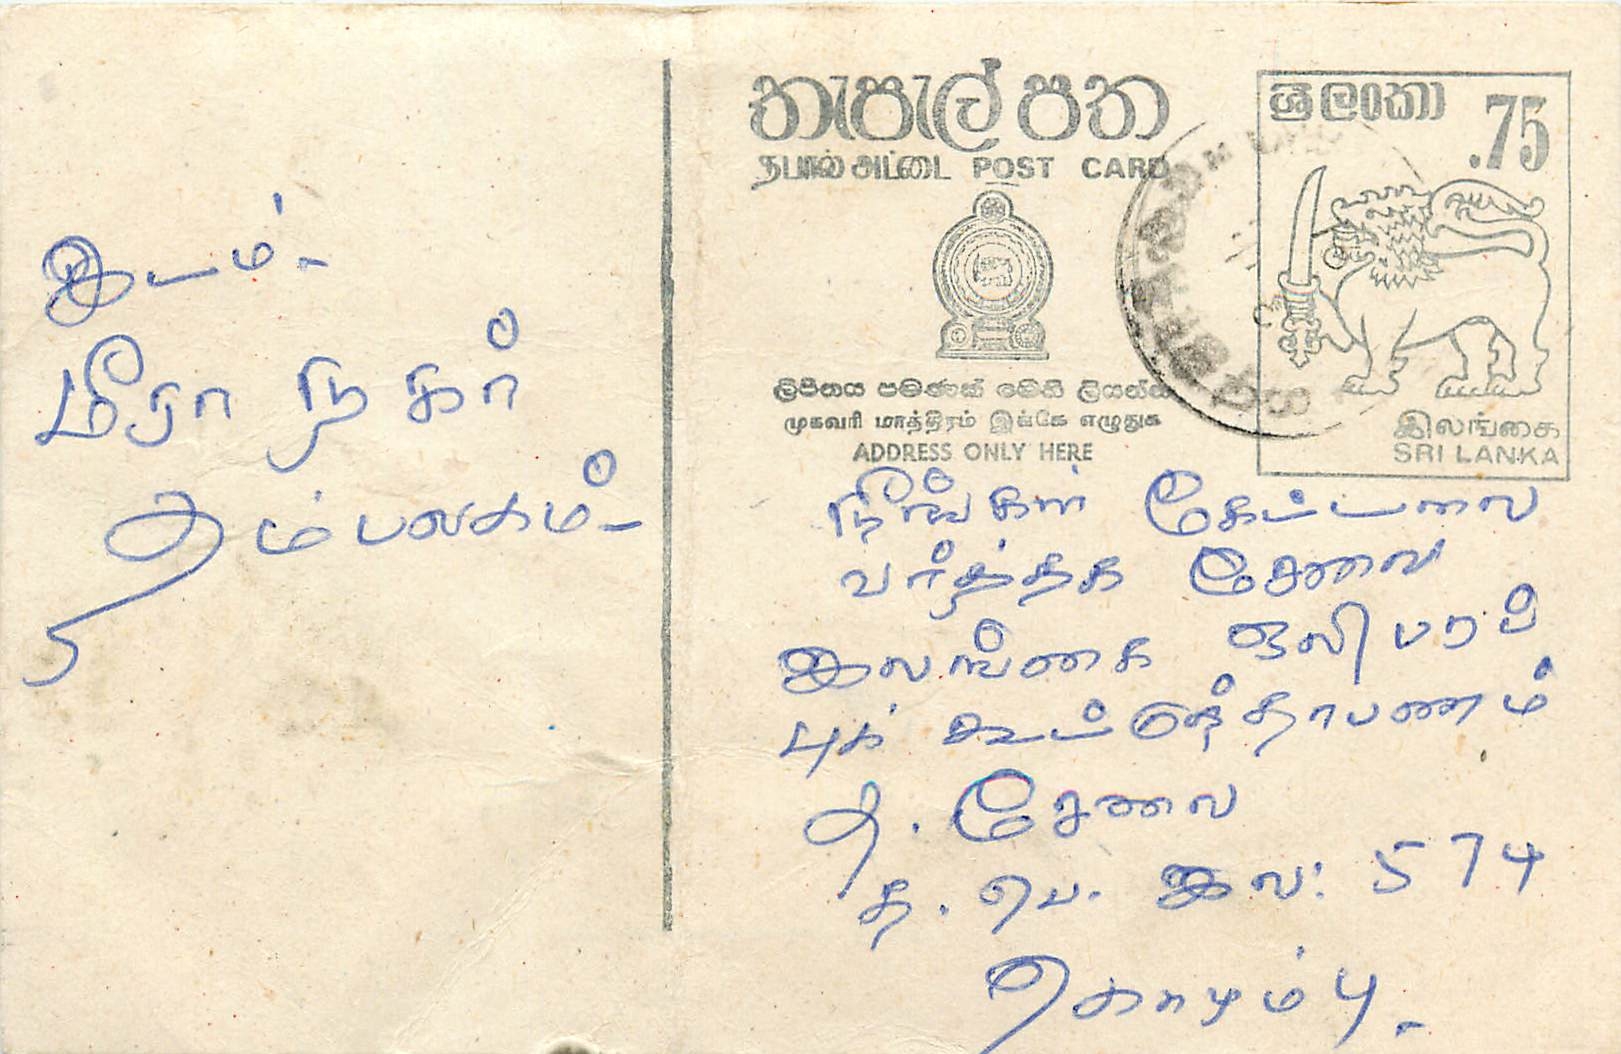 இடம்-
மீரா நகர்
தம்பலகம்-
තැපැල් පත
தபால் அட்டை POST CARD
ශ්‍රී ලංකා .75
இலங்கை
SRI LANKA
ලිපිනය පමණක් මෙහි ලියන්න
முகவரி மாத்திரம் இங்கே எழுதுக
ADDRESS ONLY HERE
நீங்கள் கேட்டவை
வர்த்தக சேவை
இலங்கை ஒலி பரப்
புக் கூட்டுத்தாபணம்
த. சேவை
த. பெ. இல: 574
கொழும்பு-